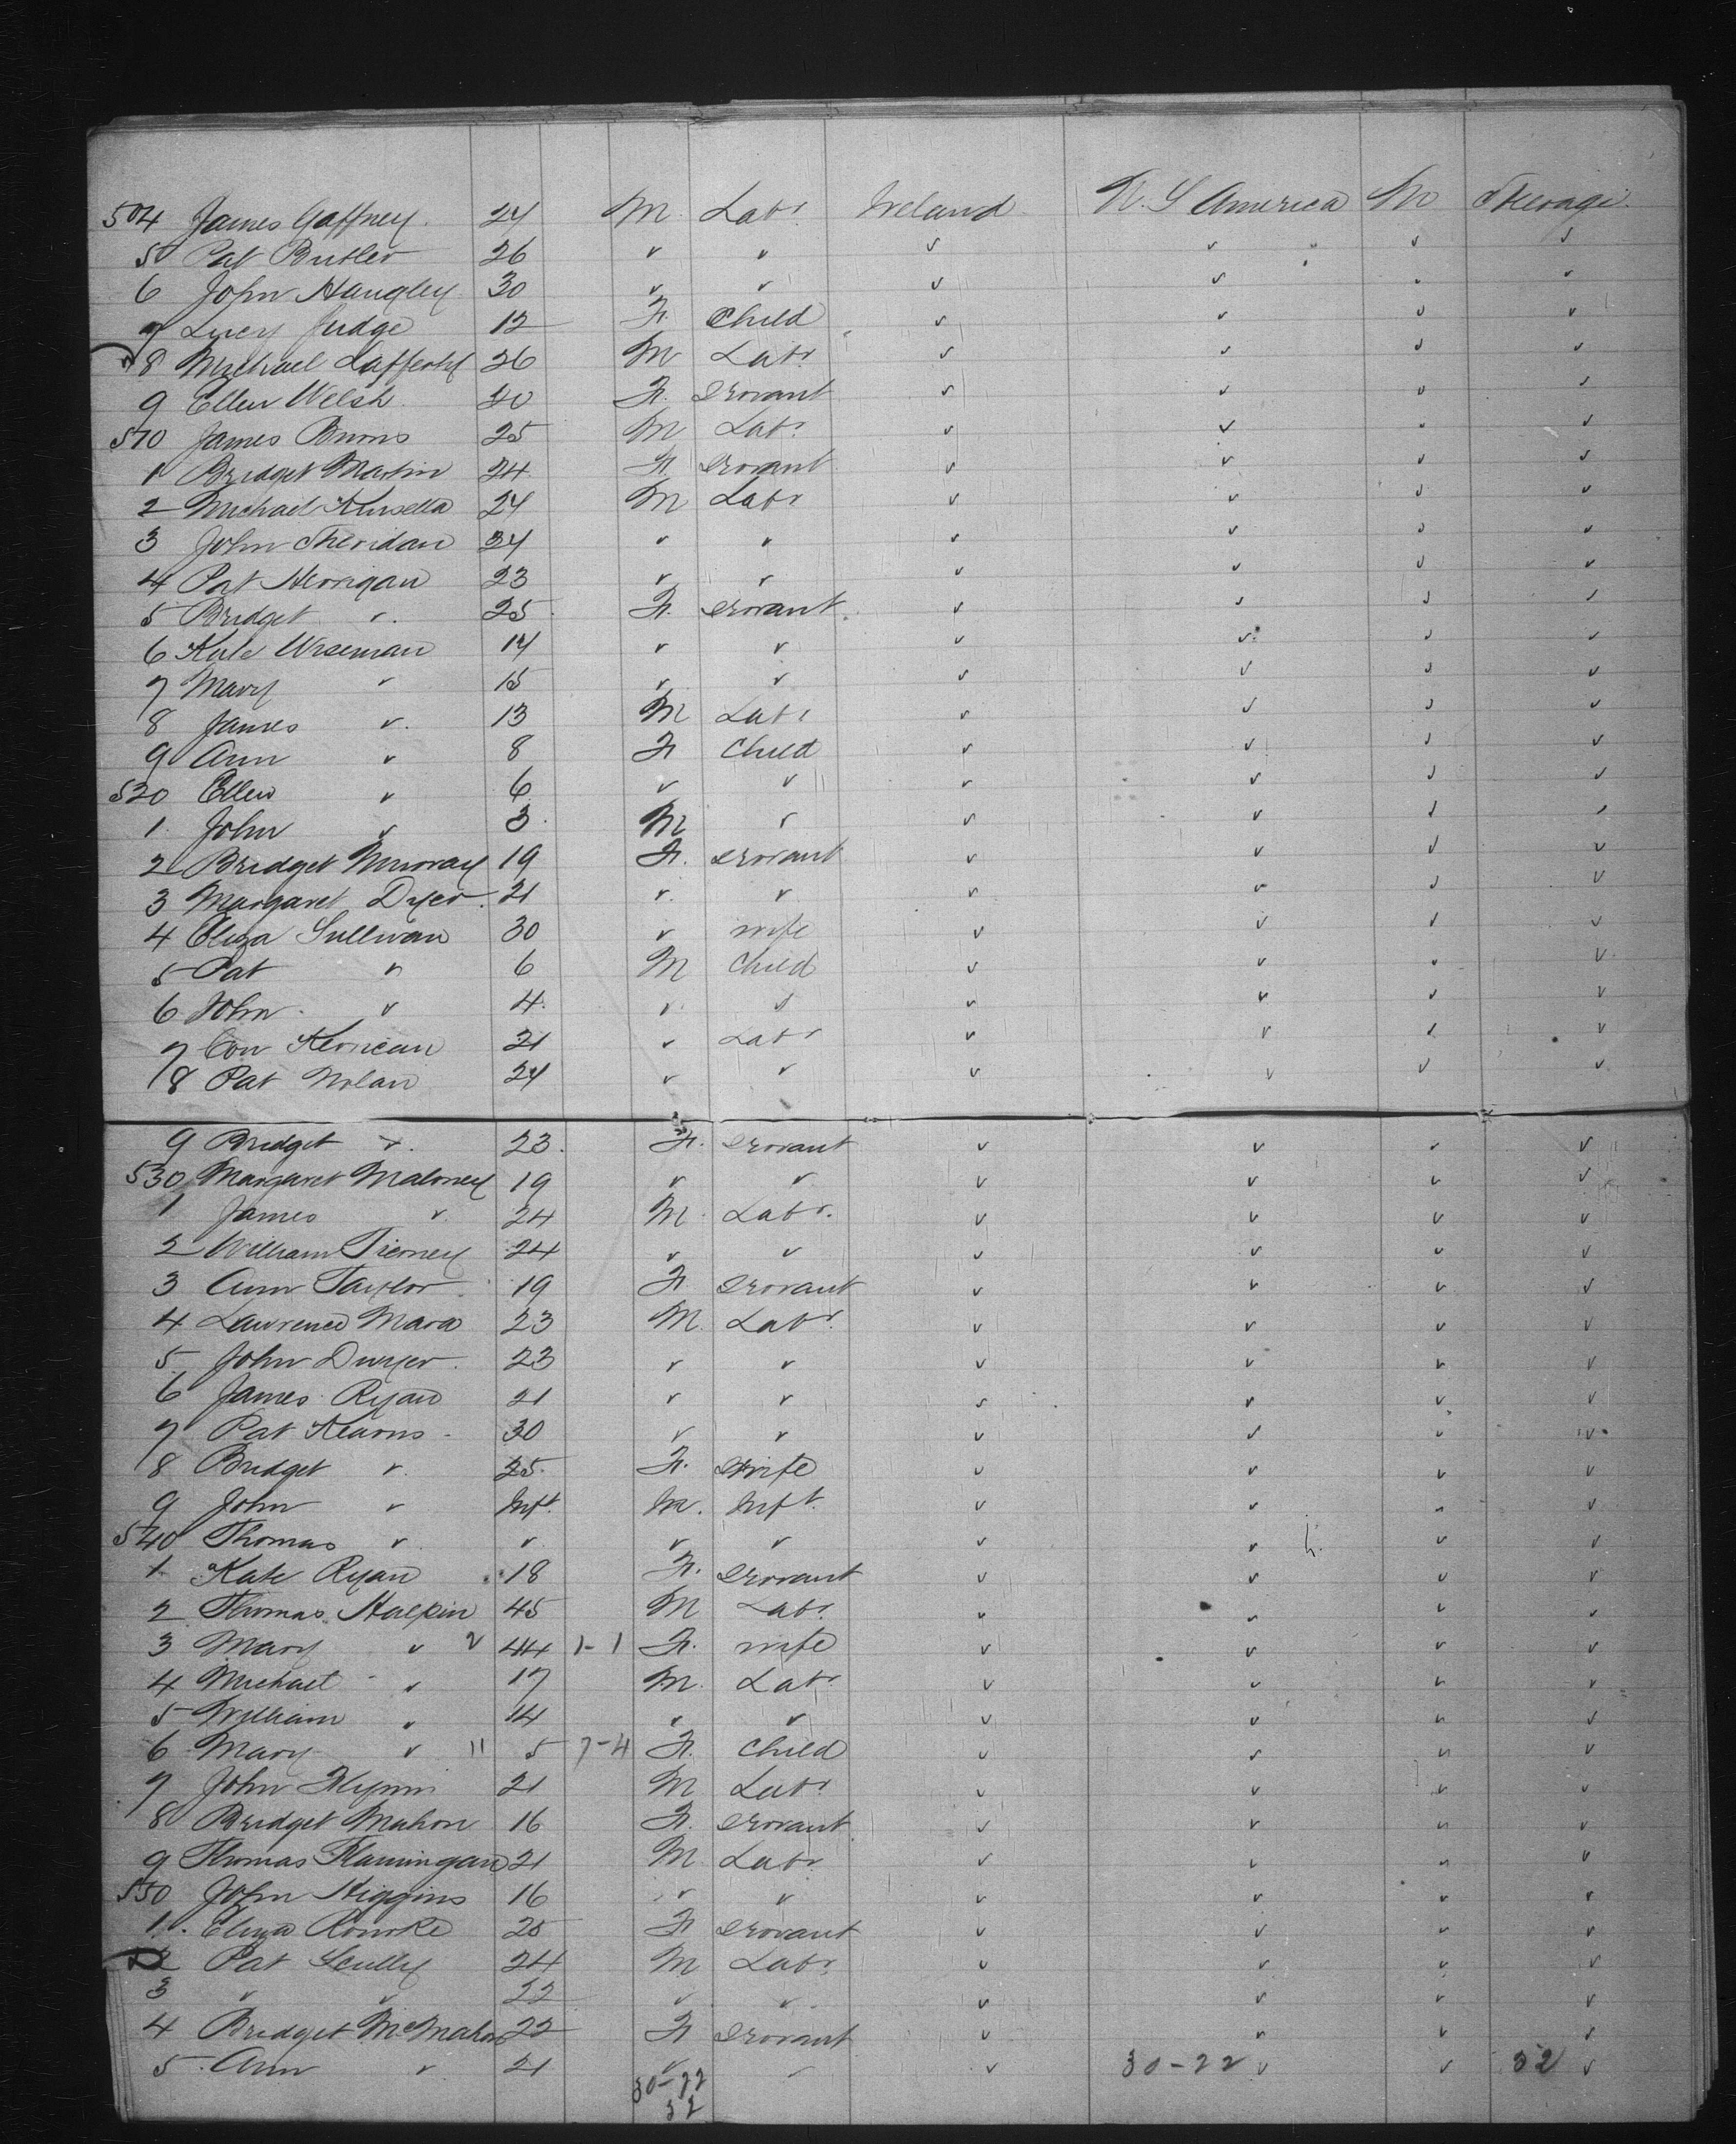 504 James Gaffney. 24 M. Labr. Ireland U. S America No Steerage.
5 Pat Butler 26 " " " " " "
6 John Haugley 30 " " " " " "
7 Lucy Judge 12 F. Child " " " "
8 Michael Lafferty 26 M Labr " " " "
9 Ellen Welsh 20 F. Servant " " " "
510 James Burns 25 M Labr. " " " "
1 Bridget Martin 24 F. Servant " " " "
2 Michael Kinsella 24 M Labr " " " "
3 John Sheridan 24 " " " " " "
4 Pat Kerrigan 23 " " " " " "
5 Bridget " 25 F. Servant " " " "
6 Kate Wiseman 17 " " " " " "
7 Mary " 15 " " " " " "
8 James " 13 M Labr " " " "
9 Ann " 8 F Child " " " "
520 Ellen " 6 " " " " " "
1 John " 3 M " " " " "
2 Bridget Murray 19 F. Servant " " " "
3 Margaret Dyer 21 " " " " " "
4 Eliza Sullivan 30 " wife " " " "
5 Pat " 6 M Child " " " "
6 John " 4 " " " " " "
7 Con 21 " Labr " " " "
8 Pat Nolan 24 " " " " " "
9 Bridget " 23 F. Servant " " " "
530 Margaret Maloney 19 " " " " " "
1 James " 24 M. Labr. " " " "
2 William Tierney 24 " " " " " "
3 Ann Taylor 19 F. Servant " " " "
4 Lawrence Mara 23 M. Labr. " " " "
5 John Dwyer 23 " " " " " "
6 James Ryan 21 " " " " " "
7 Pat Kearns 30 " " " " " "
8 Bridget " 25 F. wife " " " "
9 John " Inft. M. Inft. " " " "
540 Thomas " " " " " " " "
1 Kate Ryan 18 F. Servant " " " "
2 Thomas Halpin 45 M Labr. " " " "
3 Mary " v 44 1-1 F. wife " " " "
4 Michael " 17 M. Labr. " " " "
5 William " 14 " " " " " "
6 Mary " 11 5 7-4 F. Child " " " "
7 John Flynn 21 M Labr " " " "
8 Bridget Mahon 16 F. Servant " " " "
9 Thomas Flannigan 21 M Labr " " " "
550 John Higgins 16 " " " " " "
1 Eliza Rourke 25 F Servant " " " "
2 Pat Scully 24 M Labr. " " " "
3 " " 22 " " " " " "
4 Bridget McMahon 22 F Servant " " " "
5 Ann " 21 " " " 30-22 " " 52 "
30-22
52